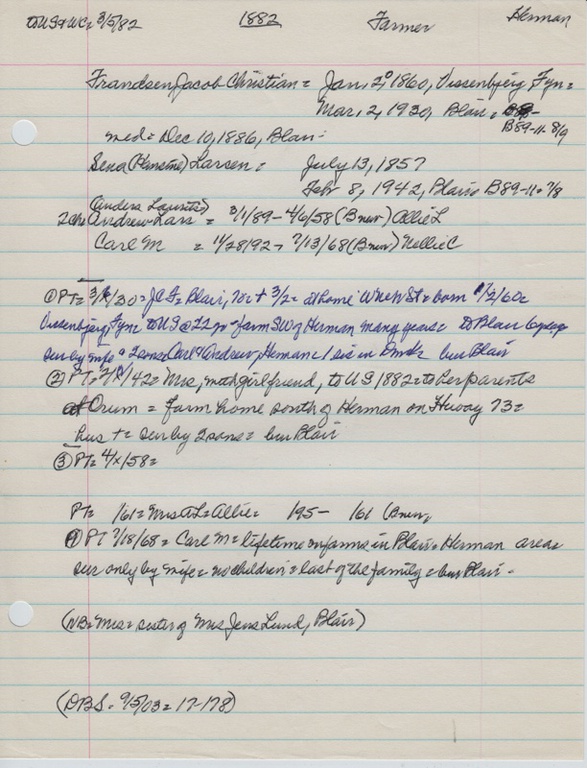 to US & WC = 3/5/82 1882 Farmer Herman
Frandsen, Jacob Christian = Jan, 2, 1860, Vissenbjerg, Fyn =
Mar, 2, 1930, Blair,
B89-11-8/9
med = Dec 10, 1886, Blair =
Sena (Kirstine) Larsen = July 13, 1857
Feb 8, 1942, Blair = B89-11-7/8
(Anders Laurits)
2 ch = Andrew Lars = 3/1/89 - 4/6/58 (B new) Allie L
Carl M = 11/28/92 - 7/13/68 (B new) Nellie C
① PT = 3/ /30 = JCF = Blair, 70 = + 3/2 = at home W New St = born 1/2/60 =
Vissenbjerg, Fyn = to US @ 22 yr = farm SW of Herman many years = to Blair 6 yrs ago
sur by wife = 2 sons = Carl & Andrew, Herman = 1 sis in Dmk = bur Blair
② PT = 2/ /42 = Mrs, with girlfriend, to US 1882 = to her parents
at Orum = farm home south of Herman on Hiway 73 =
hus + = sur by 2 sons = bur Blair
③ PT = 4/x/58 =
PT = /61 = Mrs A L = Allie = 195- 161 (B new,
④ PT 7/18/68 = Carl M = lifetime on farms, in Blair = Herman areas
sur only by wife = no children = last of the family = bur Blair -
(NB = Mrs = sister of Mrs Jens Lund, Blair)
(DBS - 9/5/03 = 17-178)